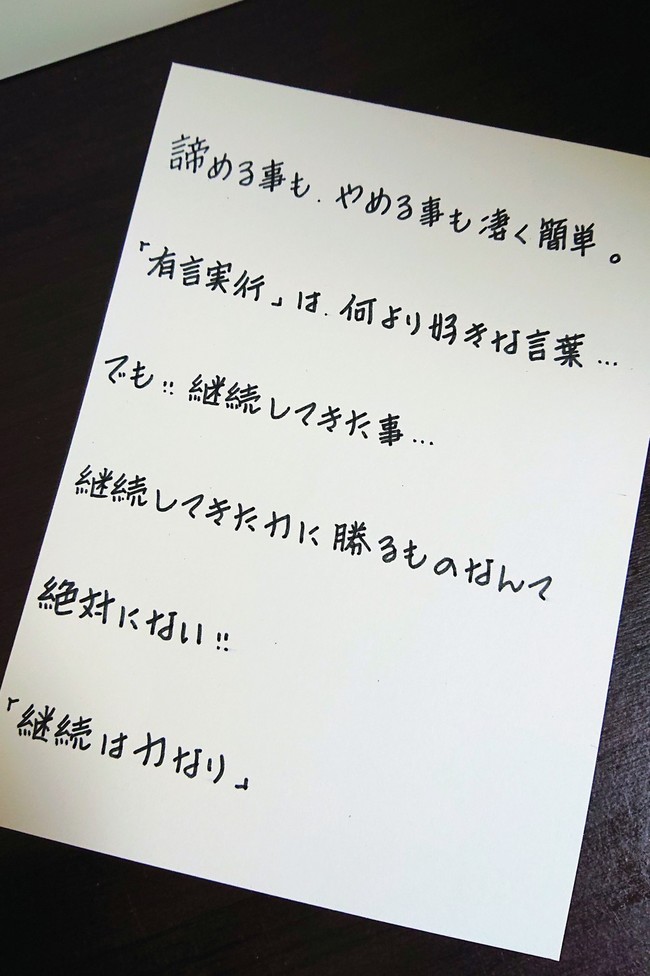 諦める事も、やめる事も凄く簡単。
「有言実行」は、何より好きな言葉…
でも!! 継続してきた事…
継続してきた力に勝るものなんて
絶対にない!!
「継続は力なり」